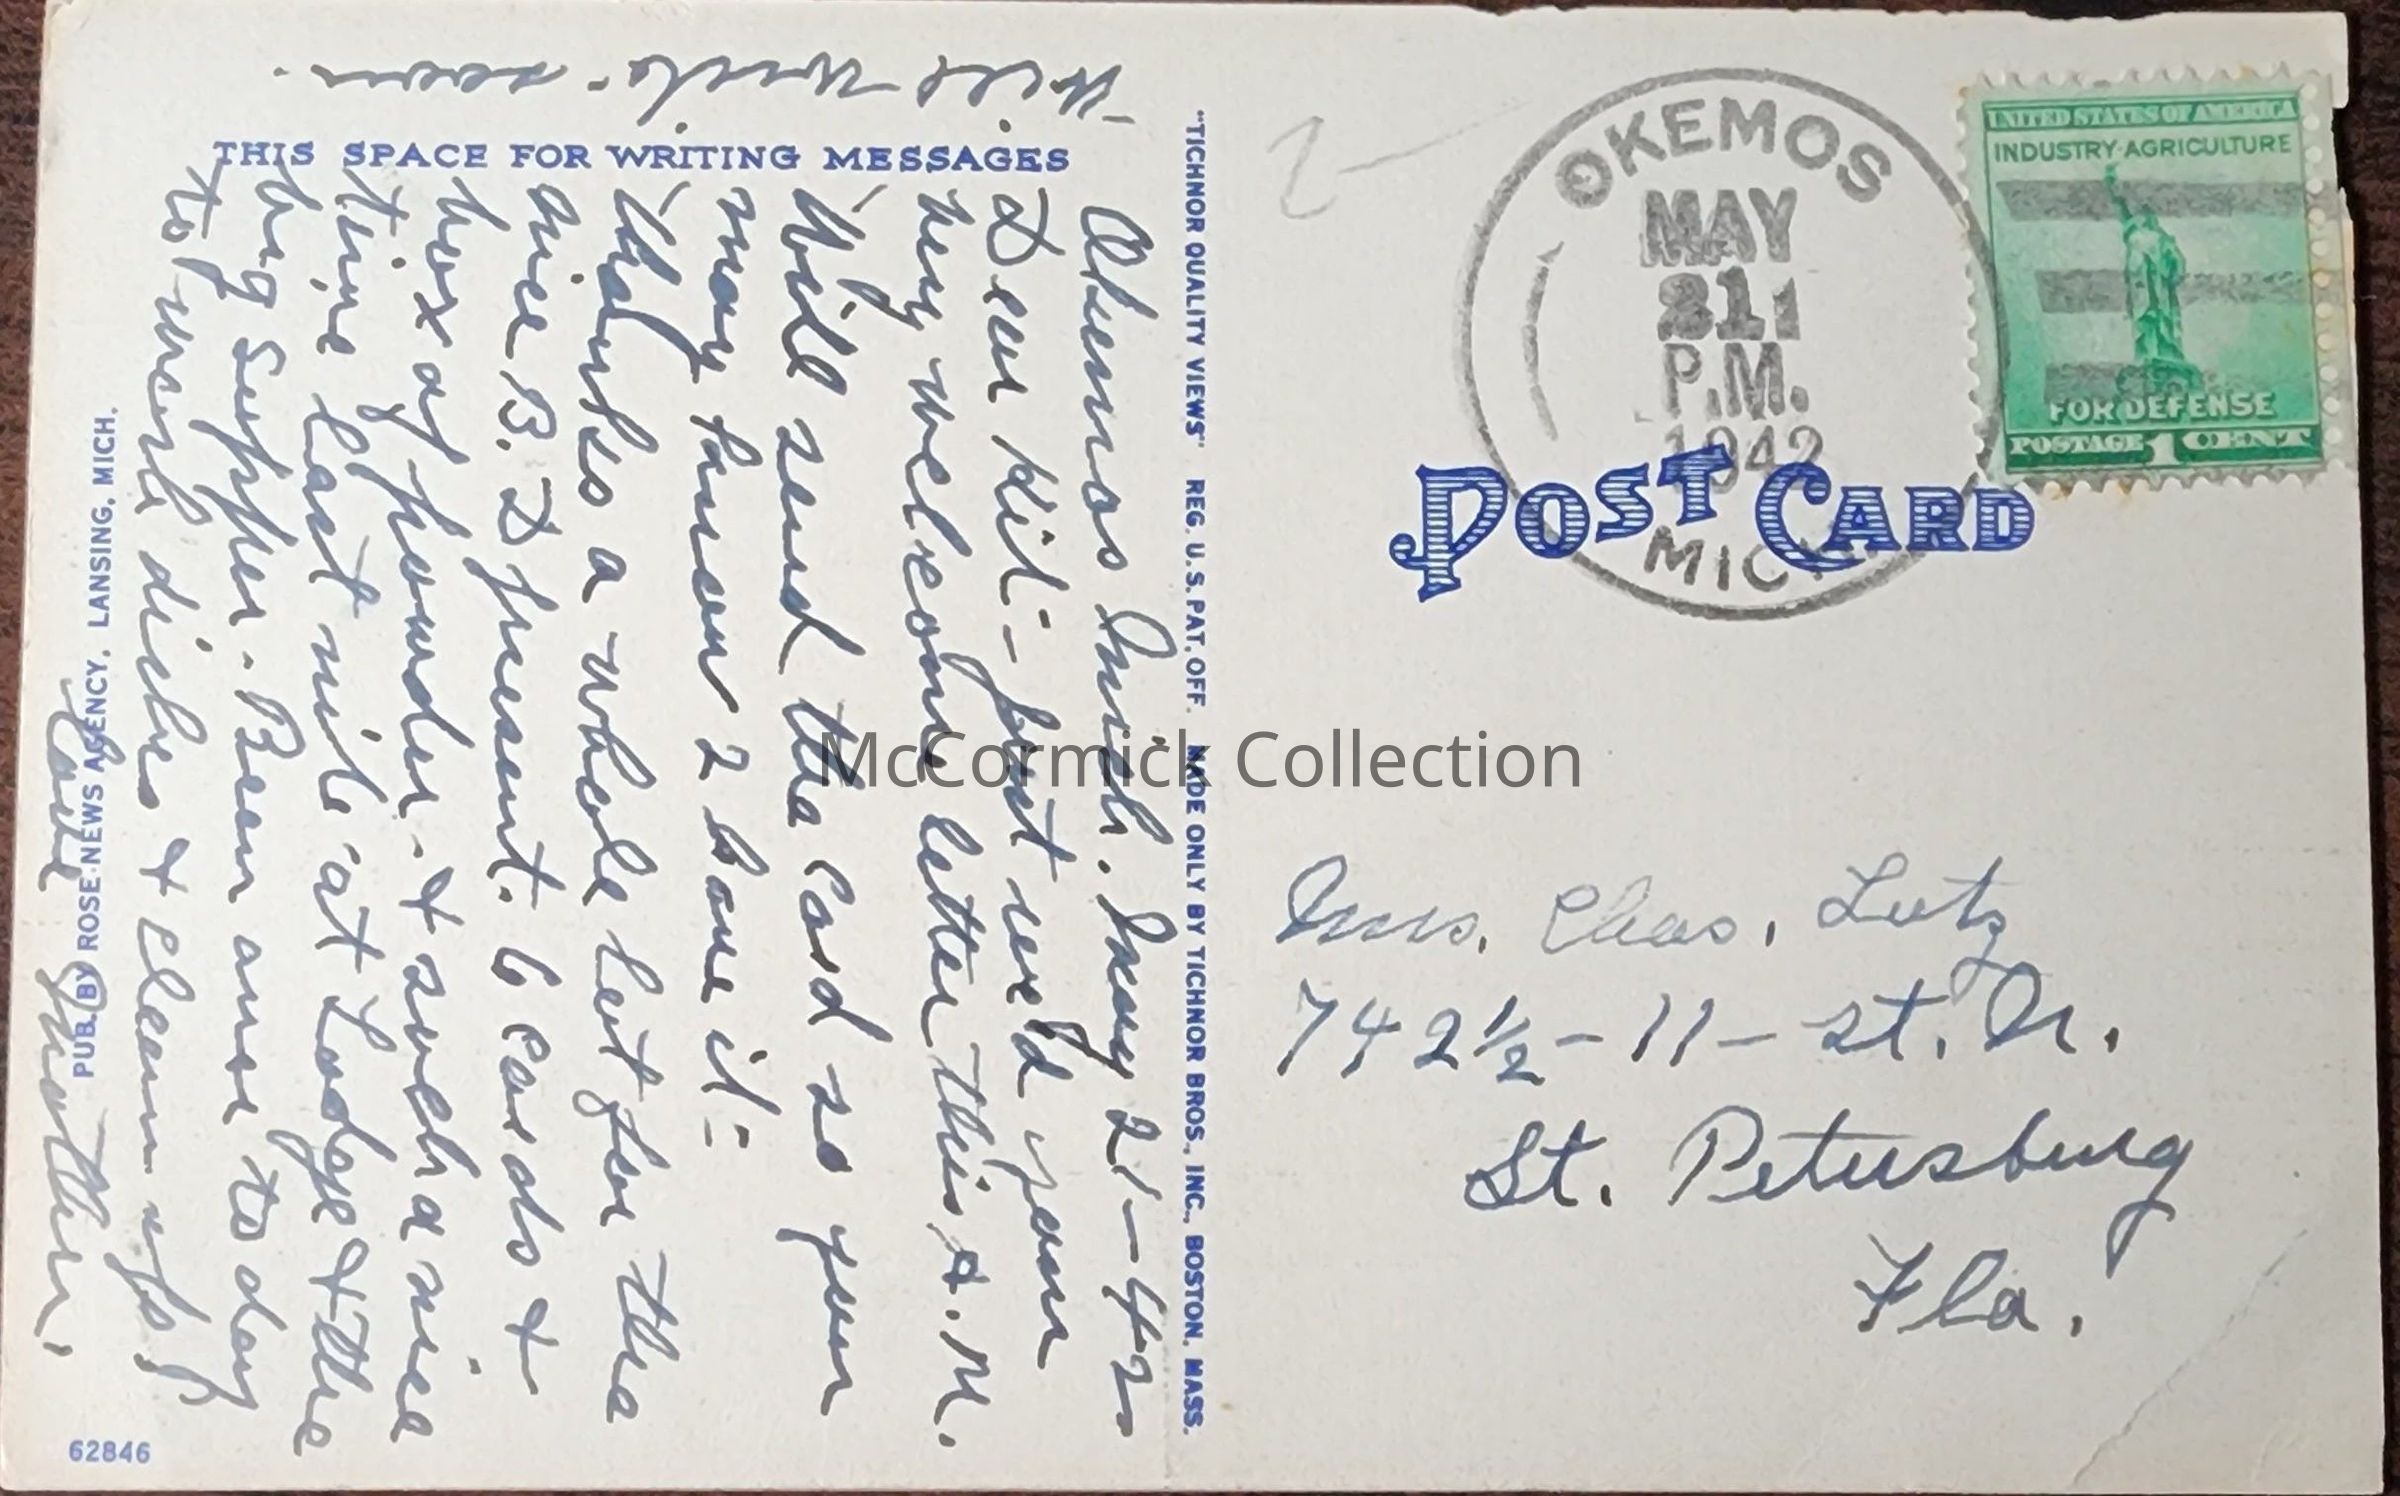 THIS SPACE FOR WRITING MESSAGES
Okemos Mich. May 21-42
Dear Kit - Just rec'd your
very welcome letter this A.M.
Will send the Card so you
may know I have it -
Thanks a whole lot for the
nice B. D present. 6 Cards &
box of powder. & such a nice
time last nite at Lodge & the
big supper. Been anxe to day
to wash dishes & clean up
Love Mother.
Will write soon.
PUB. BY ROSE NEWS AGENCY, LANSING, MICH.
62846
"TICHNOR QUALITY VIEWS" REG. U.S. PAT. OFF. MADE ONLY BY TICHNOR BROS., INC., BOSTON, MASS.
OKEMOS
MAY
21
P.M.
1942
MICH
UNITED STATES OF AMERICA
INDUSTRY·AGRICULTURE
FOR DEFENSE
POSTAGE 1 CENT
POST CARD
Mrs. Chas. Lutz
742 1/2 - 11 - St. N.
St. Petersburg
Fla.
McCormick Collection